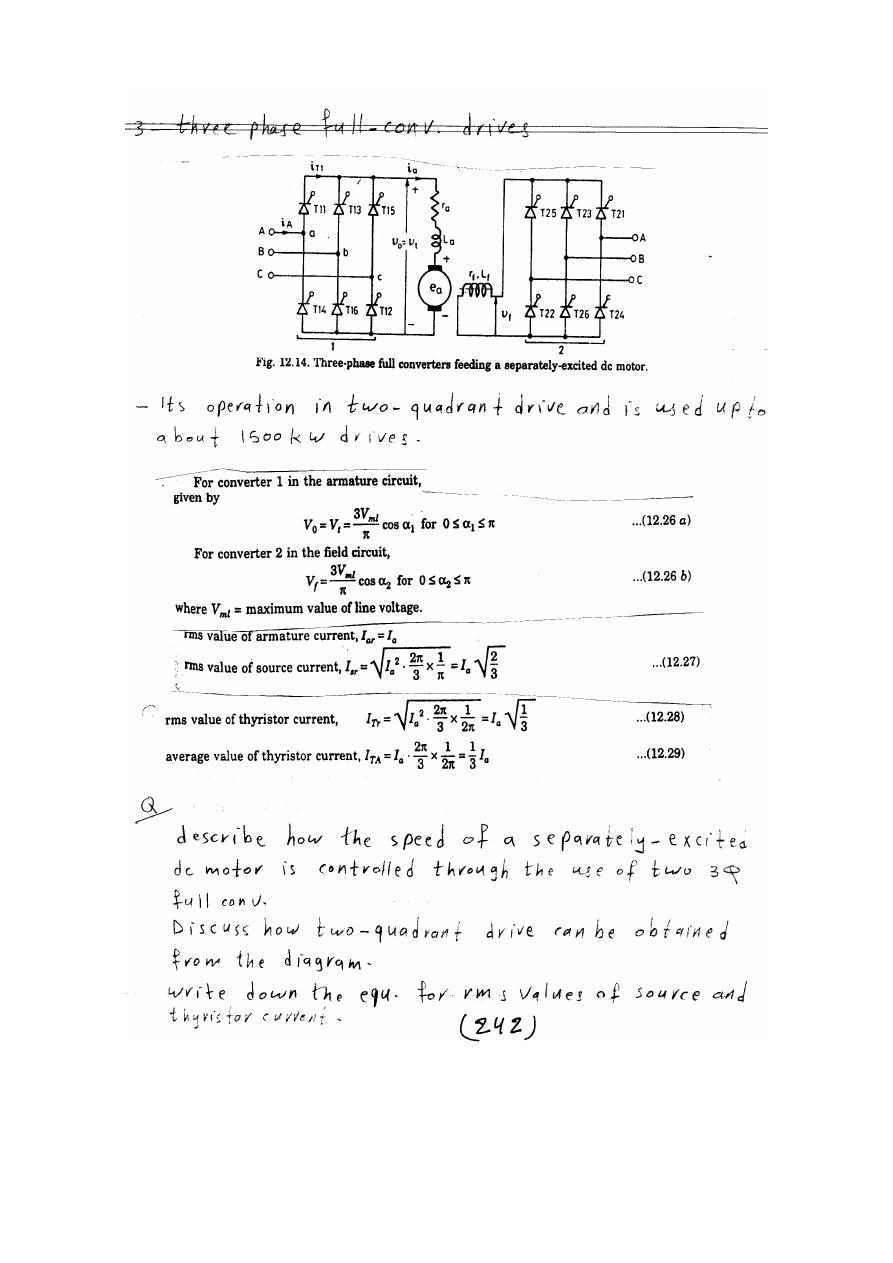 3 - three phase full-conv. drives
iT1
ia
+
T11 T13 T15
ra
T25 T23 T21
A
iA
a
vo = vt
La
A
B
b
+
B
C
c
ea
rf, Lf
C
T14 T16 T12
-
-
vf
T22 T26 T24
1
2
Fig. 12.14. Three-phase full converters feeding a separately-excited dc motor.
- Its operation in two-quadrant drive and is used up to
about 1500 kw drives.
For converter 1 in the armature circuit,
given by
V₀ = Vₜ = 3Vₘₗ/π cos α₁ for 0 ≤ α₁ ≤ π ...(12.26 a)
For converter 2 in the field circuit,
V_f = 3Vₘₗ/π cos α₂ for 0 ≤ α₂ ≤ π ...(12.26 b)
where Vₘₗ = maximum value of line voltage.
rms value of armature current, I_ar = I_a
rms value of source current, I_sr = √(I_a² · 2π/3 × 1/π) = I_a √(2/3) ...(12.27)
rms value of thyristor current, I_Tr = √(I_a² · 2π/3 × 1/2π) = I_a √(1/3) ...(12.28)
average value of thyristor current, I_TA = I_a · 2π/3 × 1/2π = 1/3 I_a ...(12.29)
Q
describe how the speed of a separately-excited
dc motor is controlled through the use of two 3φ
full conv.
Discuss how two-quadrant drive can be obtained
from the diagram.
write down the equ. for rms values of source and
thyristor current.
(242)